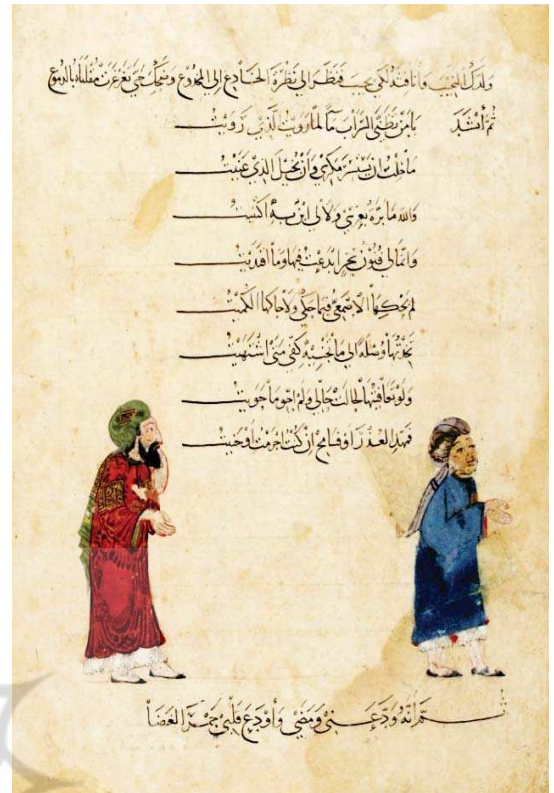 ولدك النجيب وانافثه لكي يجيب فنظر الي نظرة الخادع الي المخدوع وضحك حتي تغرغرت مقلتاه بالدموع
ثم أنشد يا من تظنى السراب مآ لما رويت الذي رويت
ما خلت ان يستسر مكري وان يخيل الذي عنيت
والله ما برة بعرسي ولا لي ابن به اكتنيت
وانما لي فنون سحر ابدعت فيها وما اقتديت
لم يحكها الاصمعي فيما حكي ولا حاكها الكميت
تخذتها وصلة الي ما تجنيه كفي متى اشتهيت
ولو تعافيتها لحالت حالي ولم احو ما حويت
فمهد العذر او فسامح ان كنت اجرمت او جنيت
ثم انه ودعني ومضي واودع قلبي جمر الغضا